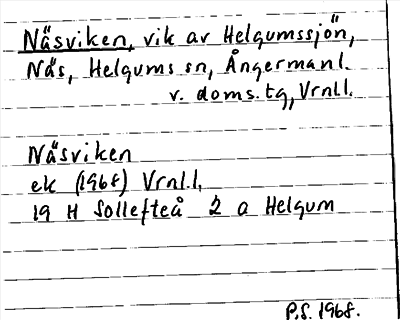 Näsviken, vik av Helgumssjön,
Näs, Helgums sn, Ångermanl.
v. doms. tg, Vrnl.l.
Näsviken
ek (1968) Vrnl.l.
19 H Sollefteå 2 a Helgum
P.S. 1968.